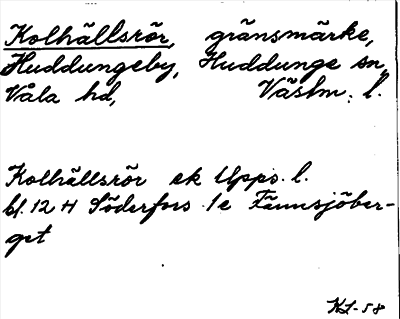 Kolhällsrör, gränsmärke,
Huddungeby, Huddunge sn,
Våla hd, Västm. l.
Kolhällsrör ek Upps. l.
bl. 12 H Söderfors 1e Tännsjöber-
get
KL-58